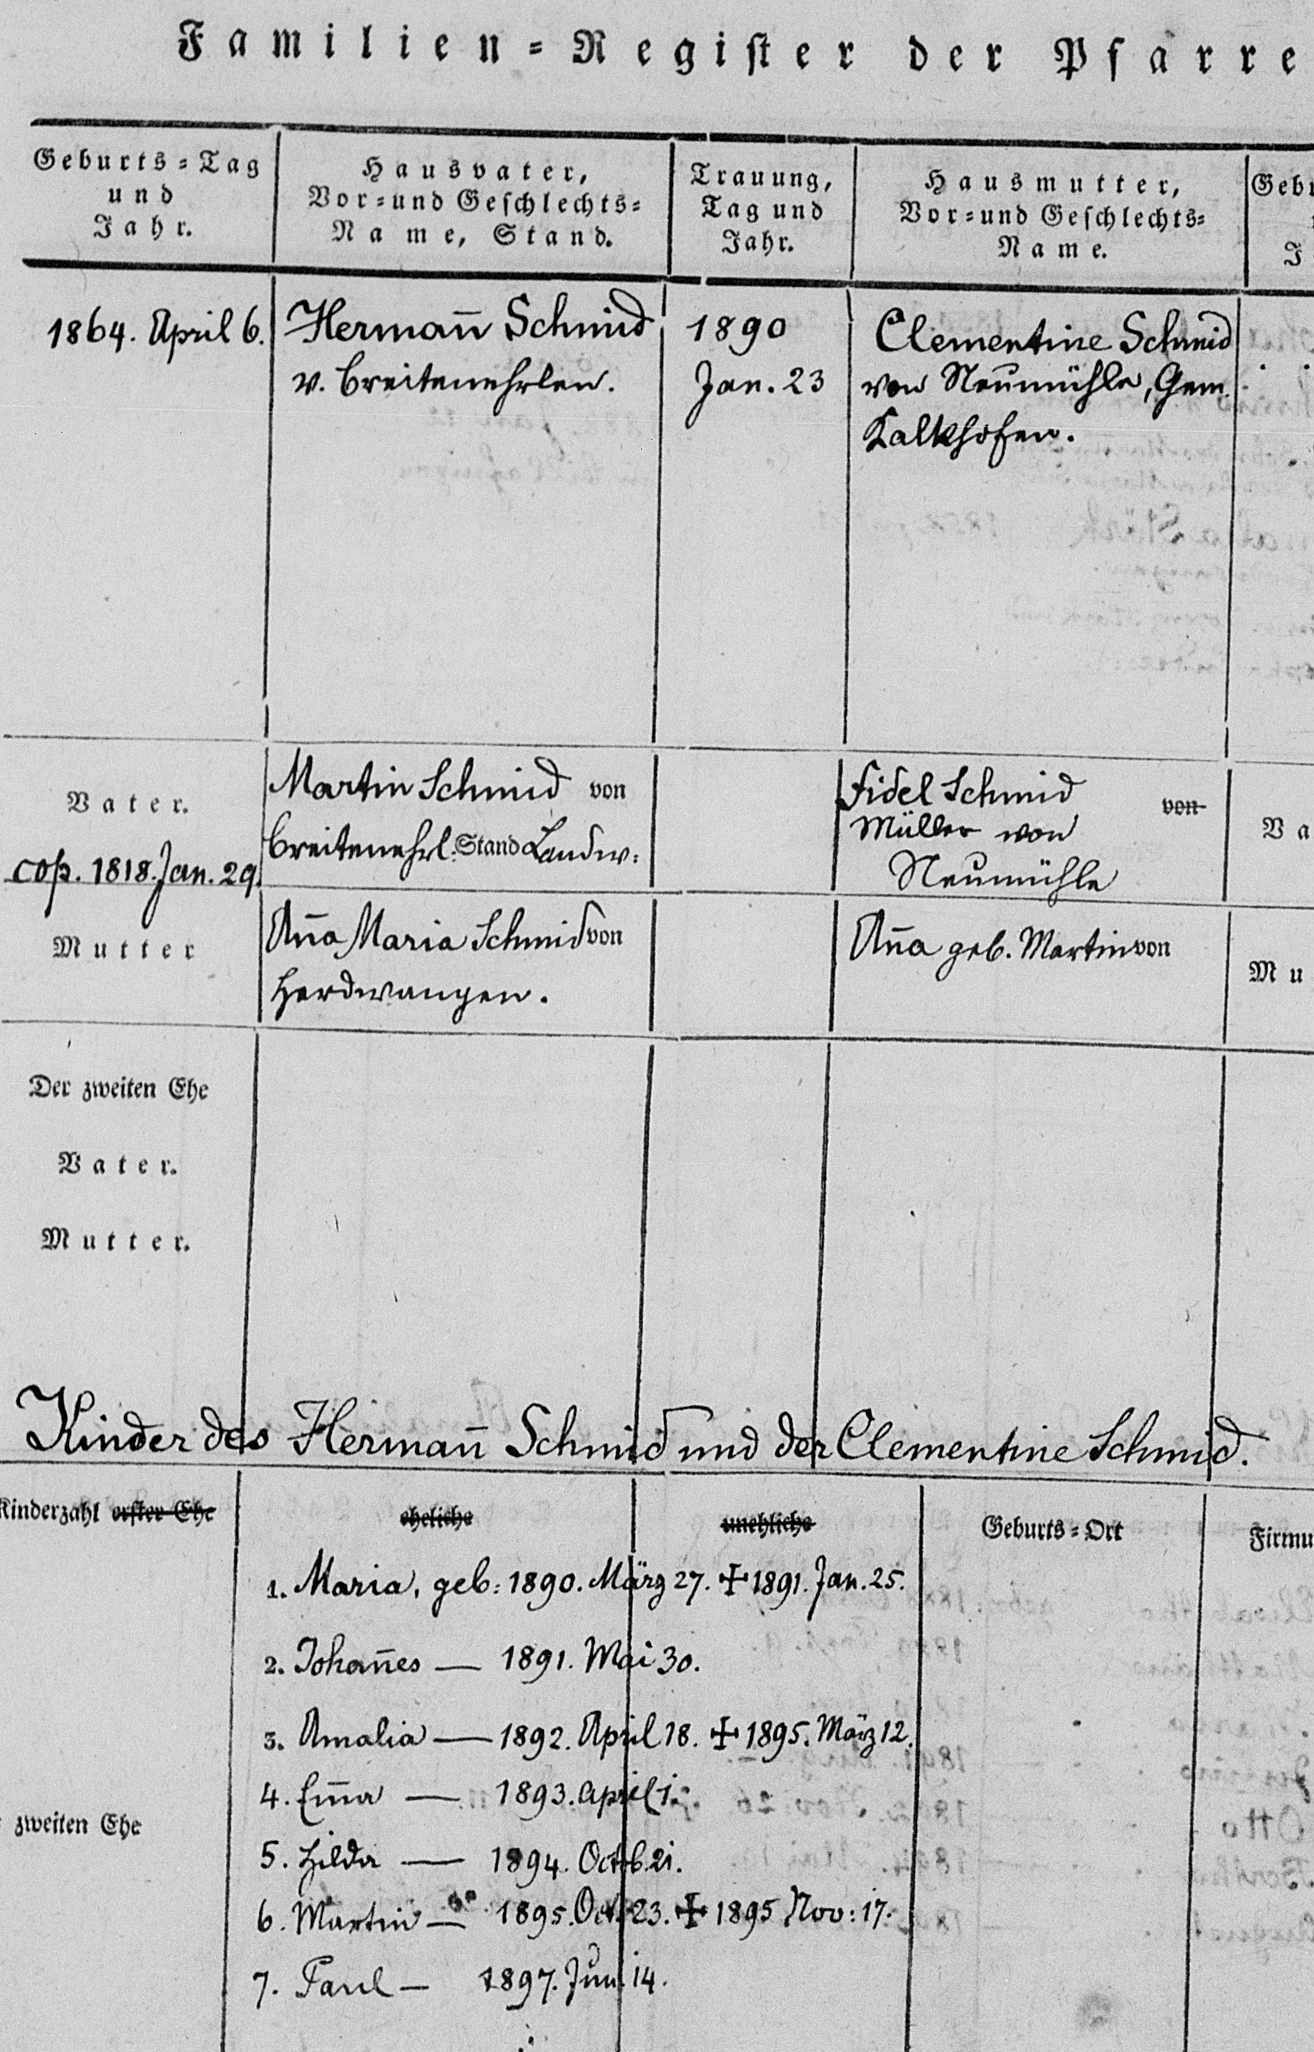 Familien-Register der Pfarre
Geburts-Tag
und
Jahr.
Hausvater,
Vor- und Geschlechts-
Name, Stand.
Trauung,
Tag und
Jahr.
Hausmutter,
Vor- und Geschlechts-
Name.
Gebu
J
1864. April 6.
Hermañ Schmid
v. Breitenehrlen.
1890
Jan. 23
Clementine Schmid
von Neumühle, Gem.
Kalkhofen.
Vater.
cop. 1818. Jan. 29.
Martin Schmid von
Breitenehrl. Stand Landw:
Fidel Schmid von
Müller von
Neumühle
Va
Mutter
Aña Maria Schmid von
Herdwangen.
Aña geb. Martin von
Mu
Der zweiten Ehe
Vater.
Mutter.
Kinder des Hermañ Schmid und der Clementine Schmid.
Kinderzahl erster Ehe
eheliche
unehliche
Geburts-Ort
Firmu
1. Maria, geb: 1890. März 27. ✠ 1891. Jan. 25.
2. Johañes — 1891. Mai 30.
3. Amalia — 1892. April 18. ✠ 1895. März 12.
4. Em̄a — 1893. April 1.
zweiten Ehe
5. Hilda — 1894. Octb. 21.
6. Martin — 1895. Oct. 23. ✠ 1895 Nov: 17.
7. Paul — 1897. Jun. 14.